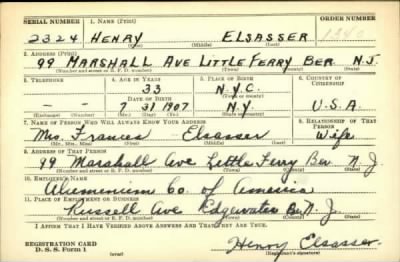 SERIAL NUMBER 1. NAME (Print) ORDER NUMBER
2324 HENRY ELSASSER 1340
(First) (Middle) (Last)
2. ADDRESS (Print)
99 MARSHALL AVE LITTLE FERRY BER. N.J.
(Number and street or R. F. D. number) (Town) (County) (State)
3. TELEPHONE 4. AGE IN YEARS 5. PLACE OF BIRTH 6. COUNTRY OF CITIZENSHIP
33 N.Y.C.
DATE OF BIRTH (Town or county)
- - 7 31 1907 N.Y. U.S.A.
(Exchange) (Number) (Mo.) (Day) (Yr.) (State or country)
7. NAME OF PERSON WHO WILL ALWAYS KNOW YOUR ADDRESS 8. RELATIONSHIP OF THAT PERSON
Mrs. Frances Elsasser Wife
(Mr., Mrs., Miss) (First) (Middle) (Last)
9. ADDRESS OF THAT PERSON
99 Marshall Ave Little Ferry Ber. N.J.
(Number and street or R. F. D. number) (Town) (County) (State)
10. EMPLOYER'S NAME
Aluminium Co. of America
11. PLACE OF EMPLOYMENT OR BUSINESS
Russell Ave Edgewater Ber. N.J.
(Number and street or R. F. D. number) (Town) (County) (State)
I AFFIRM THAT I HAVE VERIFIED ABOVE ANSWERS AND THAT THEY ARE TRUE.
REGISTRATION CARD
D. S. S. Form 1 (over) Henry Elsasser
(Registrant's signature)